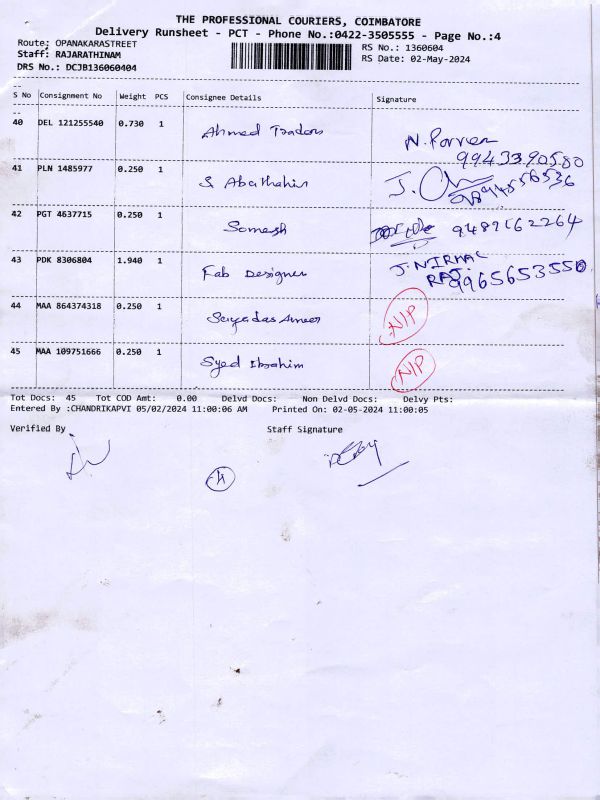 THE PROFESSIONAL COURIERS, COIMBATORE
Delivery Runsheet - PCT - Phone No.:0422-3505555 - Page No.:4
Route: OPANAKARASTREET
Staff: RAJARATHINAM
DRS No.: DCJB136060404
RS No.: 1360604
RS Date: 02-May-2024
S No Consignment No Weight PCS Consignee Details Signature
40 DEL 121255540 0.730 1 Ahmed Traders N. 9943390580
41 PLN 1485977 0.250 1 S J.
42 PGT 4637715 0.250 1 Somesh 9489162264
43 PDK 8306804 1.940 1 Fab Designer J. NIRMAL RAJ. 9965653550
44 MAA 864374318 0.250 1 NIP
45 MAA 109751666 0.250 1 Syed Ibrahim NIP
Tot Docs: 45 Tot COD Amt: 0.00 Delvd Docs: Non Delvd Docs: Delvy Pts:
Entered By :CHANDRIKAPVI 05/02/2024 11:00:06 AM Printed On: 02-05-2024 11:00:05
Verified By Staff Signature